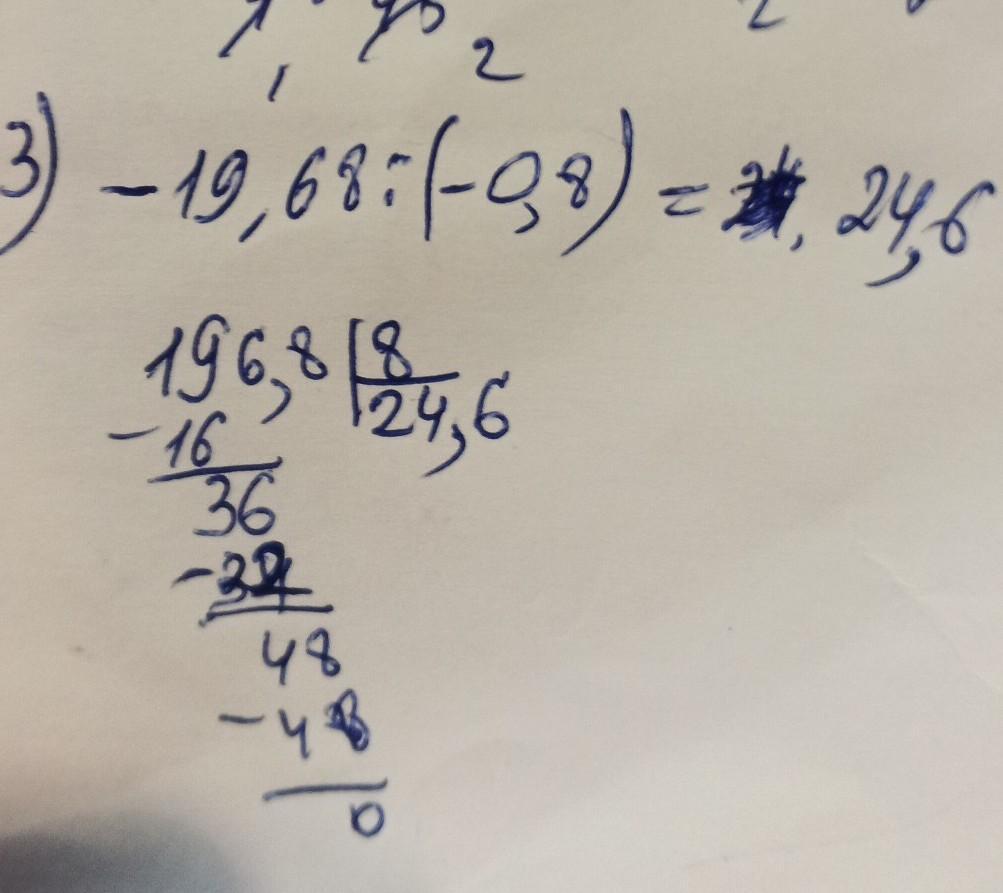 2 2
3) -19,68:(-0,8) = 24,6
196,8 | 8
24,6
-16
36
-32
48
-48
0